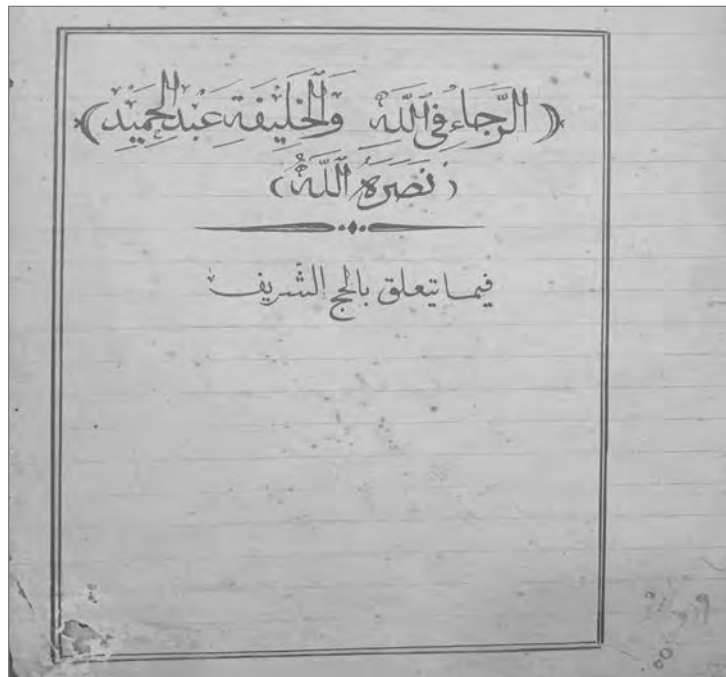 ﴿ الرَّجَاءِ فِي اللَّهِ وَالْخَلِيفَةِ عَبْدِ الْحَمِيدِ ﴾
( نَصَرَهُ اللَّهُ )
فيما يتعلق بالحج الشريف